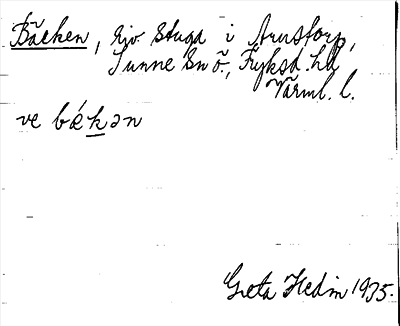 Bäcken, riv stuga i Arnstorp,
Sunne sn ö., Fryksd. hd
Värml. l.
ve bǽkən
Greta Hedin 1935.